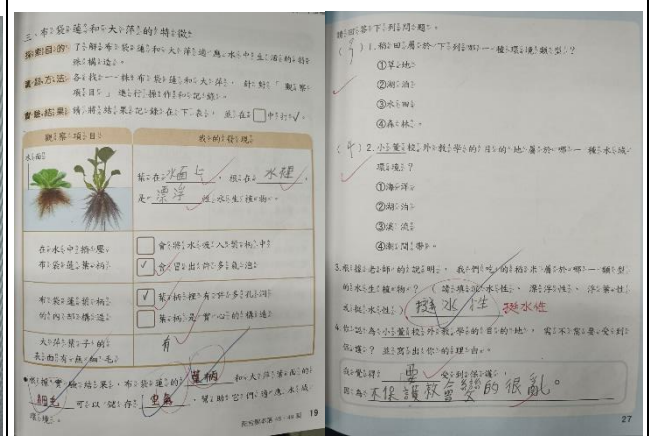 三、布袋蓮和大萍的特徵
探索目的 了解布袋蓮和大萍適應水中生活的特
殊構造。
實驗方法 各找一株布袋蓮和大萍，針對「觀察
項目」進行操作和記錄。
實驗結果 請將結果記錄在下表，並在□中打✓。
觀察項目
我的發現
水面
葉在水面上，根在水裡，
是漂浮性水生植物。
在水中捏壓
布袋蓮葉柄
會將水吸入葉柄中
✓ 會冒出許多氣泡
布袋蓮葉柄
的內部構造
✓ 葉柄裡有許多孔洞
葉柄是實心的構造
大萍葉子的
表面有無細毛
有
根據實驗結果，布袋蓮的葉柄和大萍葉面的
細毛可以儲存空氣，幫助它們適應水域
環境。
19
請回答下列問題。
1.稻田屬於下列哪一種環境類型？
①草地
②湖泊
③水田
④森林。
(4) 2.小萱校外教學的目的地屬於哪一種水域
環境？
①海洋
②湖泊
③溪流
④潮間帶。
3.依據老師的說明，我們吃的稻米屬於哪一類型
的水生植物？（請填沉水性、漂浮性、浮葉性
或挺水性）挺水性 挺水性
4.你認為小萱校外教學的目的地，需不需要受到
保護？並寫出你的理由。
我覺得要受到保護，
因為不保護就會變的很亂。
27